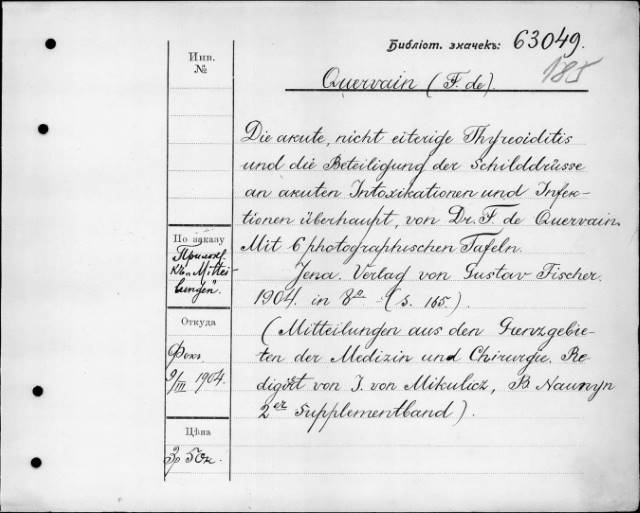 Библіот. значекъ: 63049.
185
Инв.
№
Quervain (F. de).
Die akute, nicht eiterige Thyreoiditis
und die Beteiligung der Schilddrüsse
an akuten Intoxikationen und Infek-
tionen überhaupt, von Dr. F. de Quervain.
Mit 6 photographischen Tafeln.
Jena. Verlag von Gustav Fischer.
1904. in 8º (S. 165.)
(Mitteilungen aus den Grenzgebie-
ten der Medizin und Chirurgie. Re-
digirt von J. von Mikulicz, B. Naunyn
2er Supplementband).
По заказу
Прилож.
къ „Mittei-
lungen“.
Откуда
Фокъ
9/III 1904.
Цѣна
3р 50к